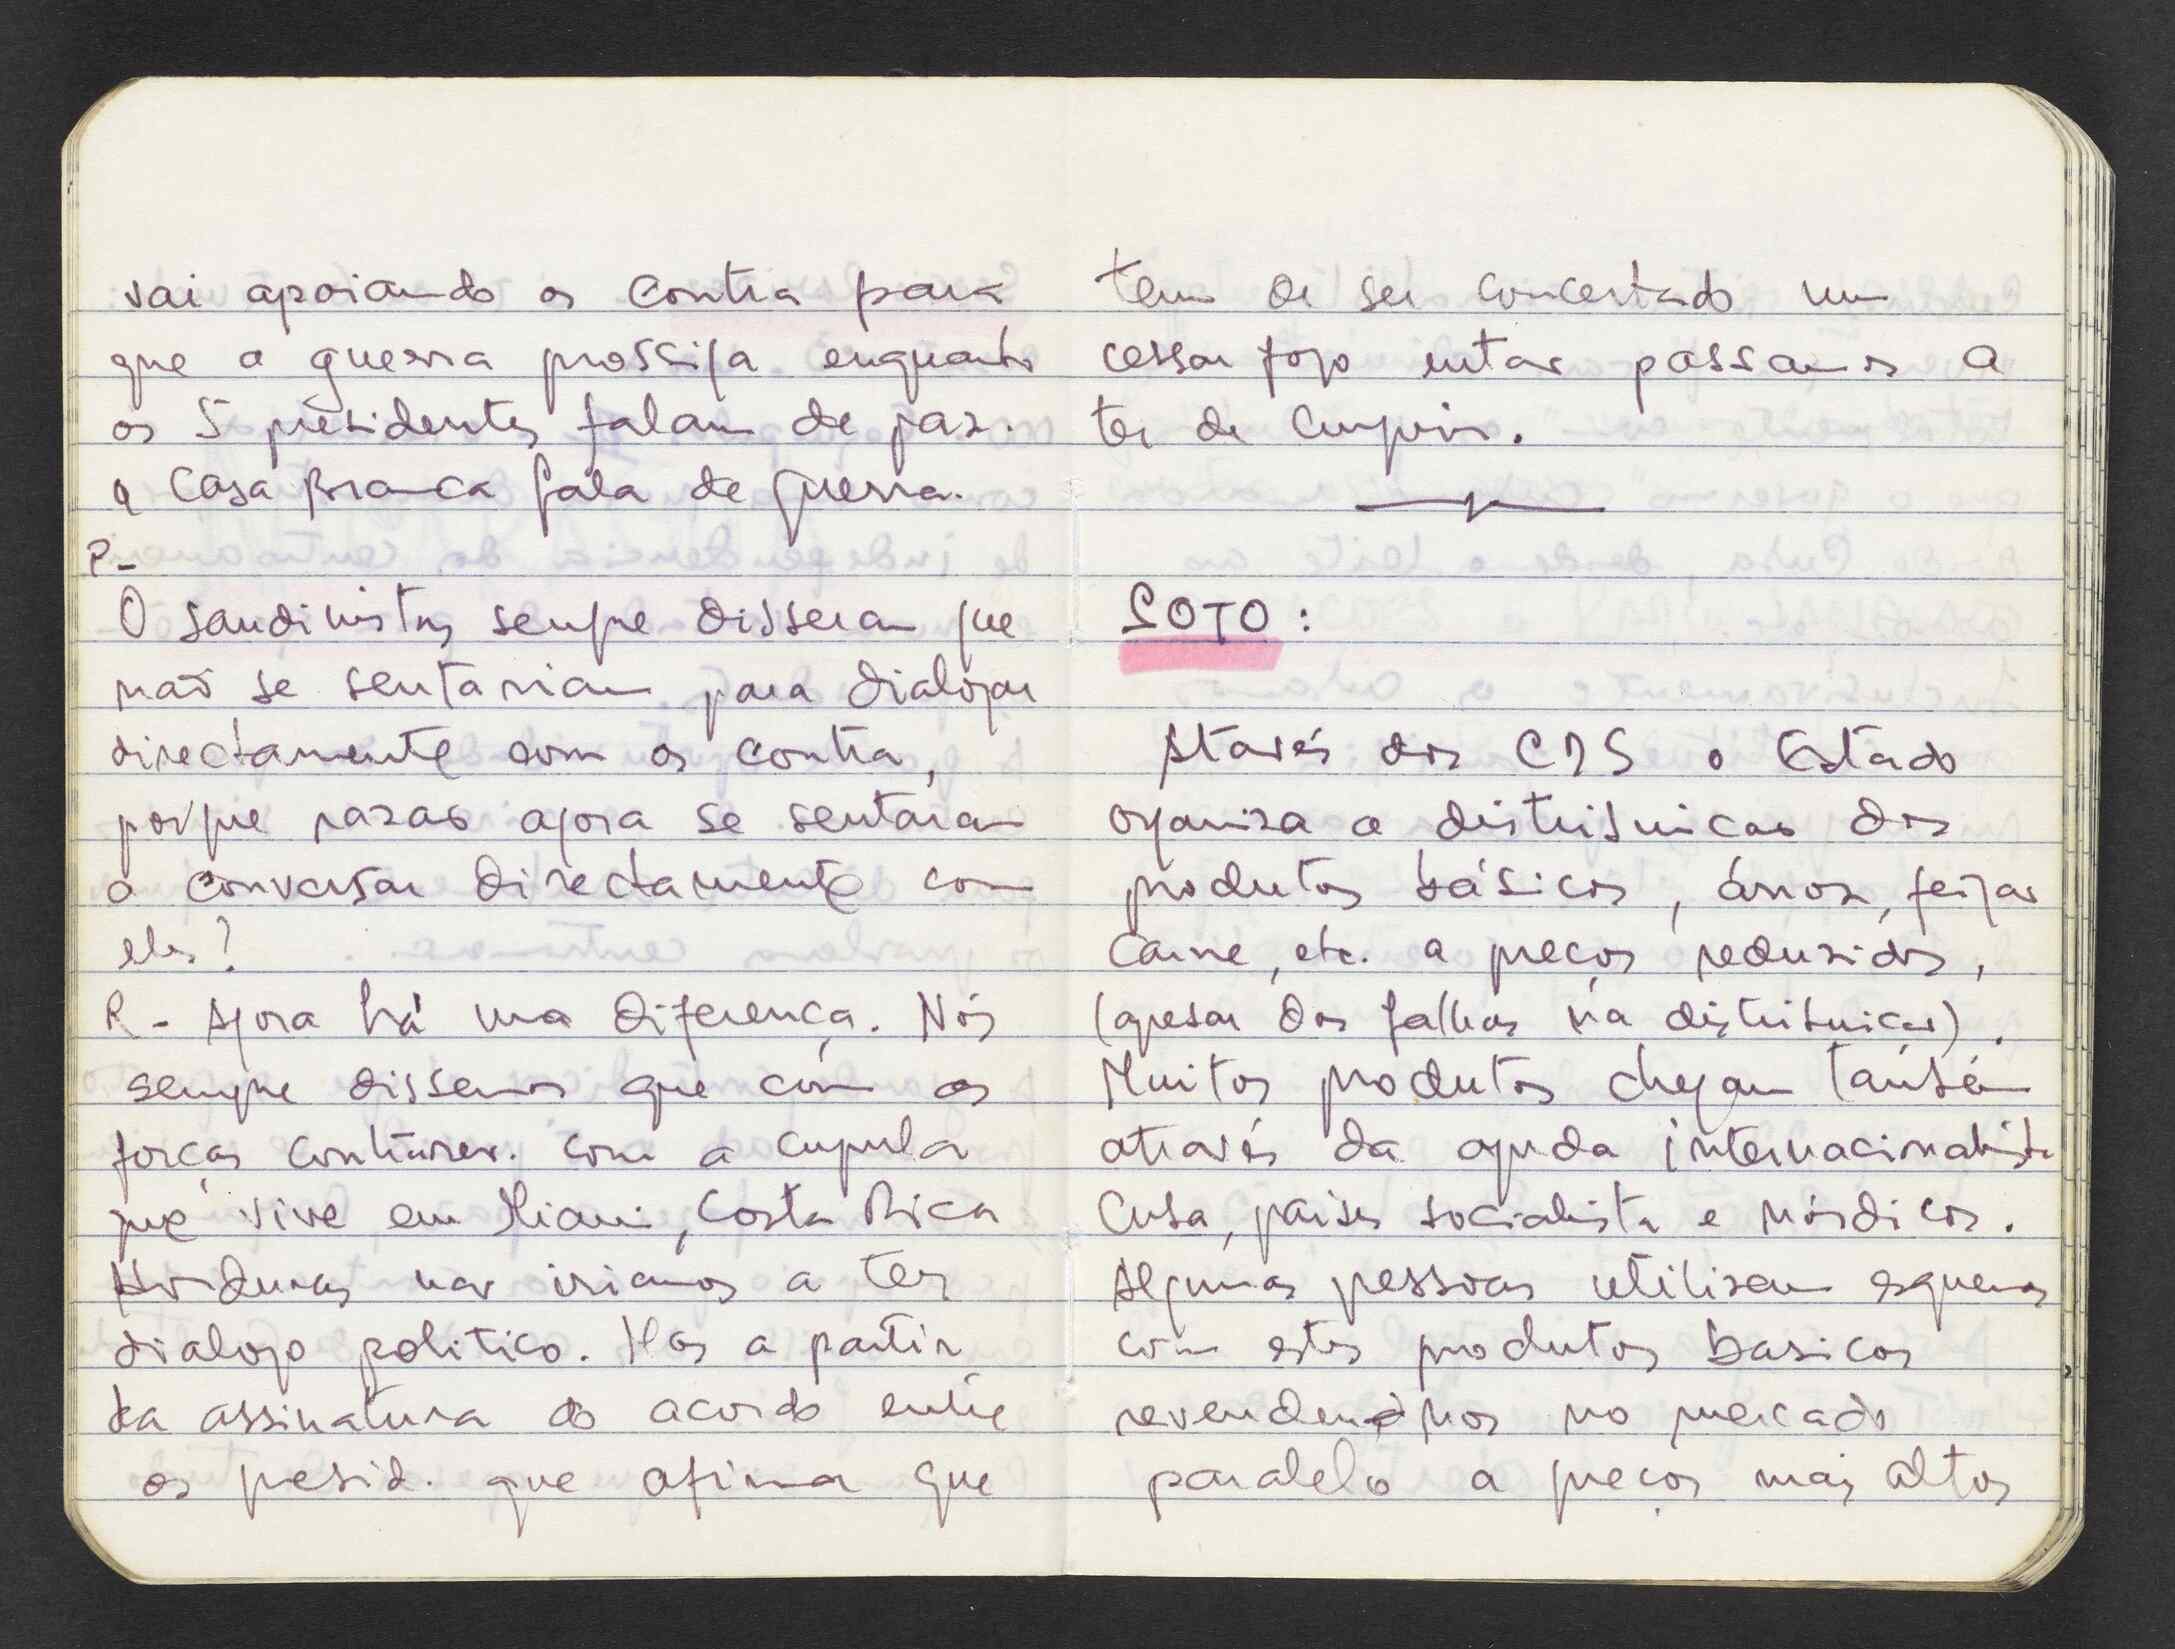 vai apoiando os contra para
que a guerra prossiga enquanto
os 5 presidentes falam de paz.
a Casa Branca fala de guerra.
P-
O sandinistas sempre disseram que
não se sentariam para dialogar
directamente com os contra,
porque razao agora se sentaram
a conversar directamente com
eles?
R - Agora há uma diferença. Nós
sempre dissemos que com as
forças contrarev. com a cupula
que vive em Miami, Costa Rica
Honduras nao iriamos a ter
dialogo politico. Mas a partir
da assinatura do acordo entre
os presid. que afirma que
tem de ser concertado um
cessar fogo entao passamos a
ter de cumprir.
SOTO :
Através dos CDS o Estado
organiza a distribuicao dos
produtos básicos, arroz, feijao
carne, etc. a preços reduzidos,
(apesar das falhas na distribuicao).
Muitos produtos chegam também
através da ajuda internacionalista
Cuba, paises socialista e nórdicos.
Algumas pessoas utilizam esquemas
com estes produtos basicos
revendendo-nos no mercado
paralelo a preços mais altos